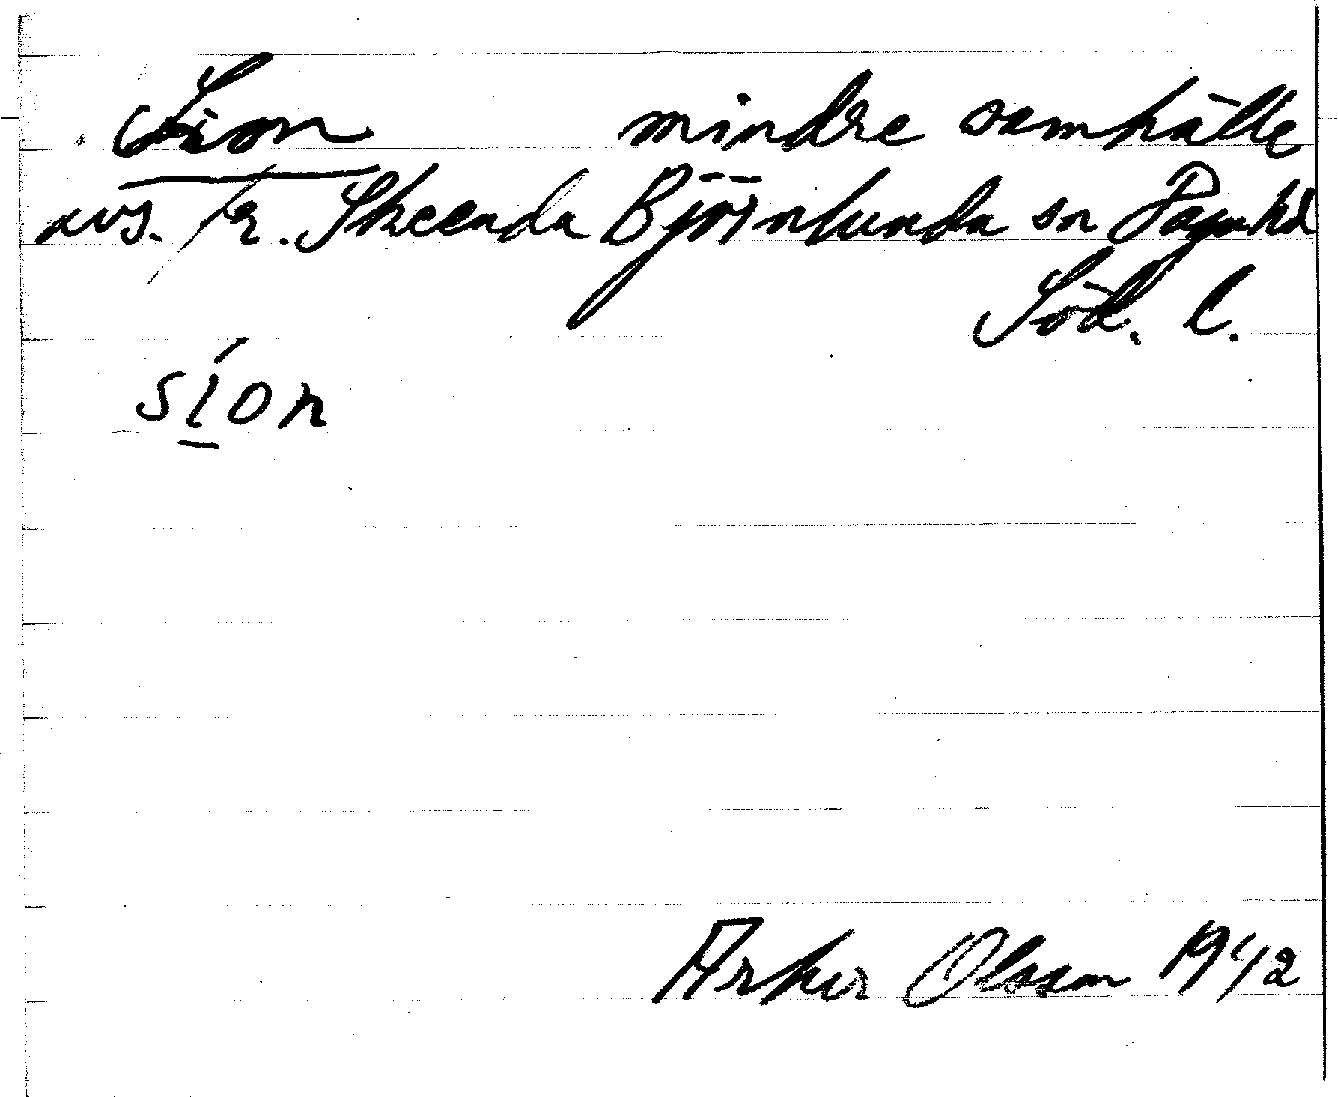 Sion mindre samhälle
avs. fr. Skeenda Björnlunda sn Daga hd
Söd. l.
síon
Artur Olsson 1942